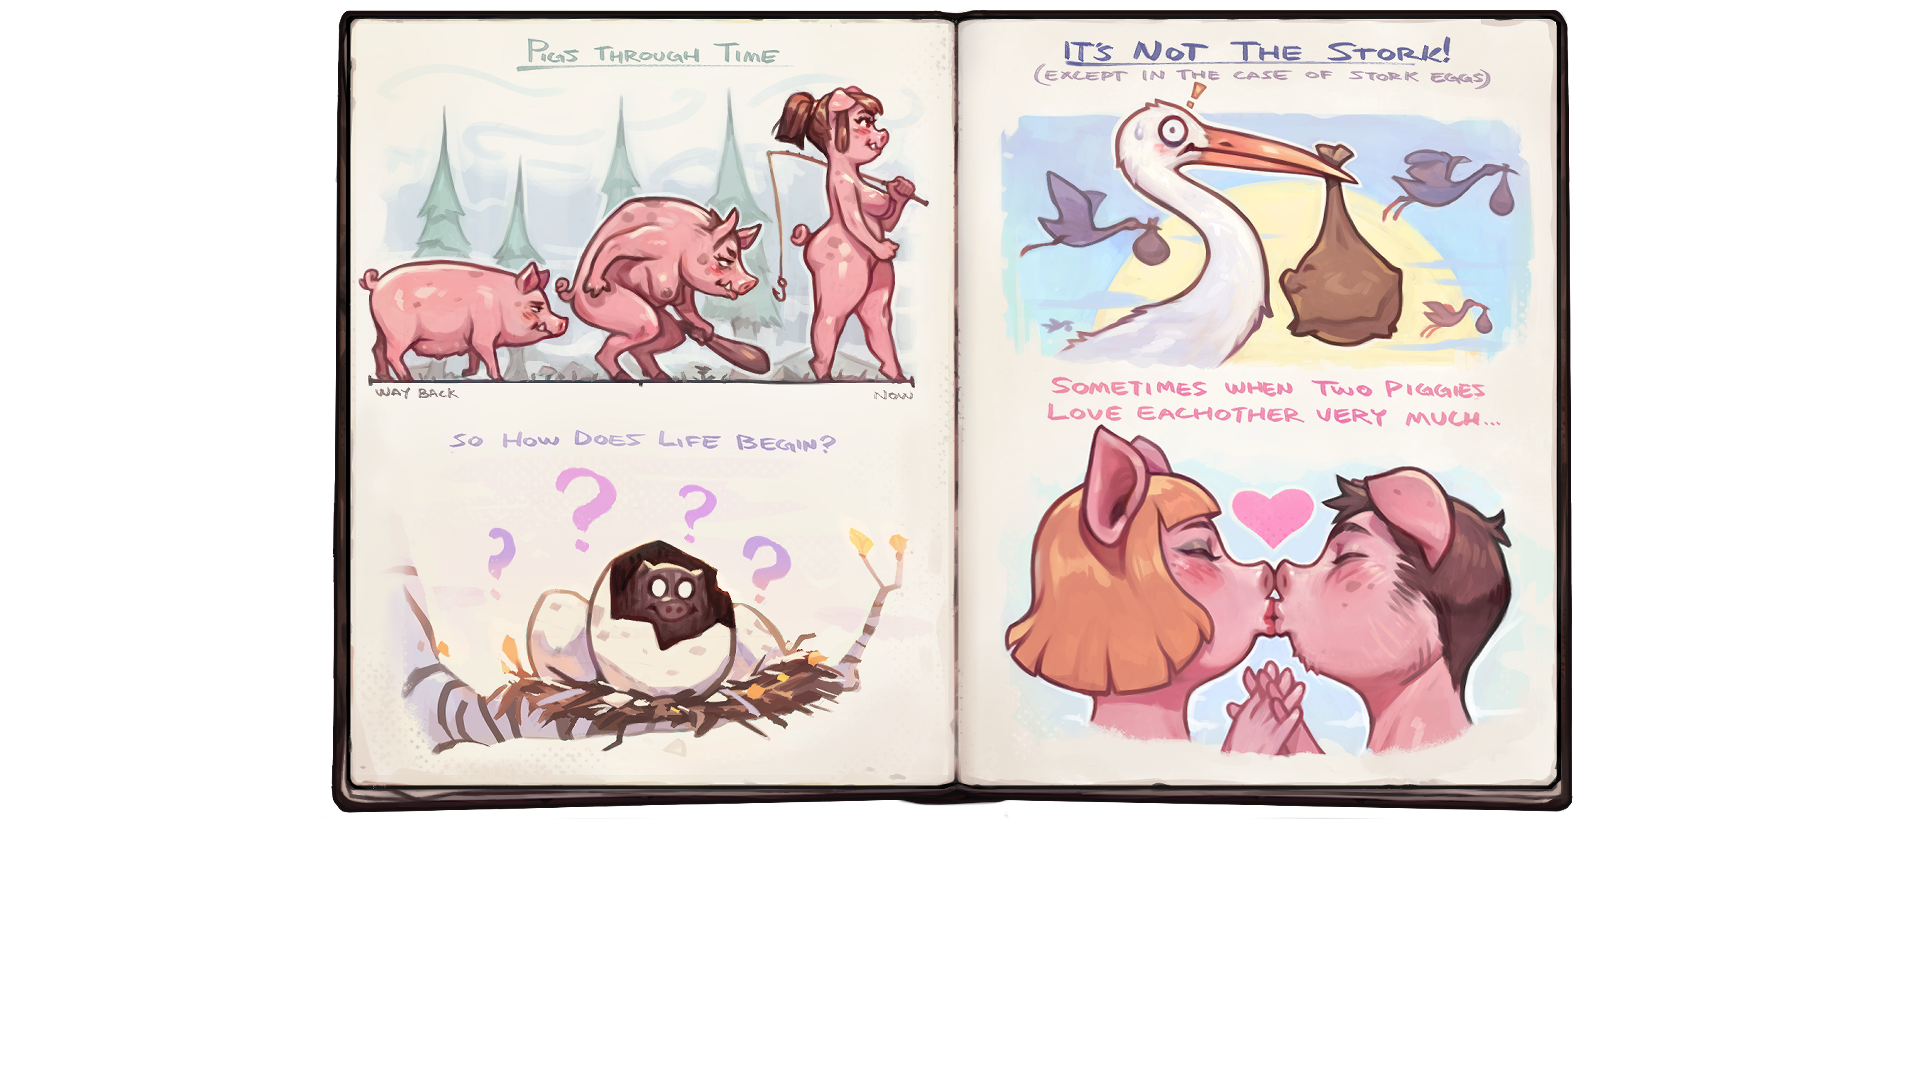 PIGS THROUGH TIME
WAY BACK
NOW
SO HOW DOES LIFE BEGIN?
? ? ? ?
IT'S NOT THE STORK!
(EXCEPT IN THE CASE OF STORK EGGS)
!
SOMETIMES WHEN TWO PIGGIES
LOVE EACHOTHER VERY MUCH...